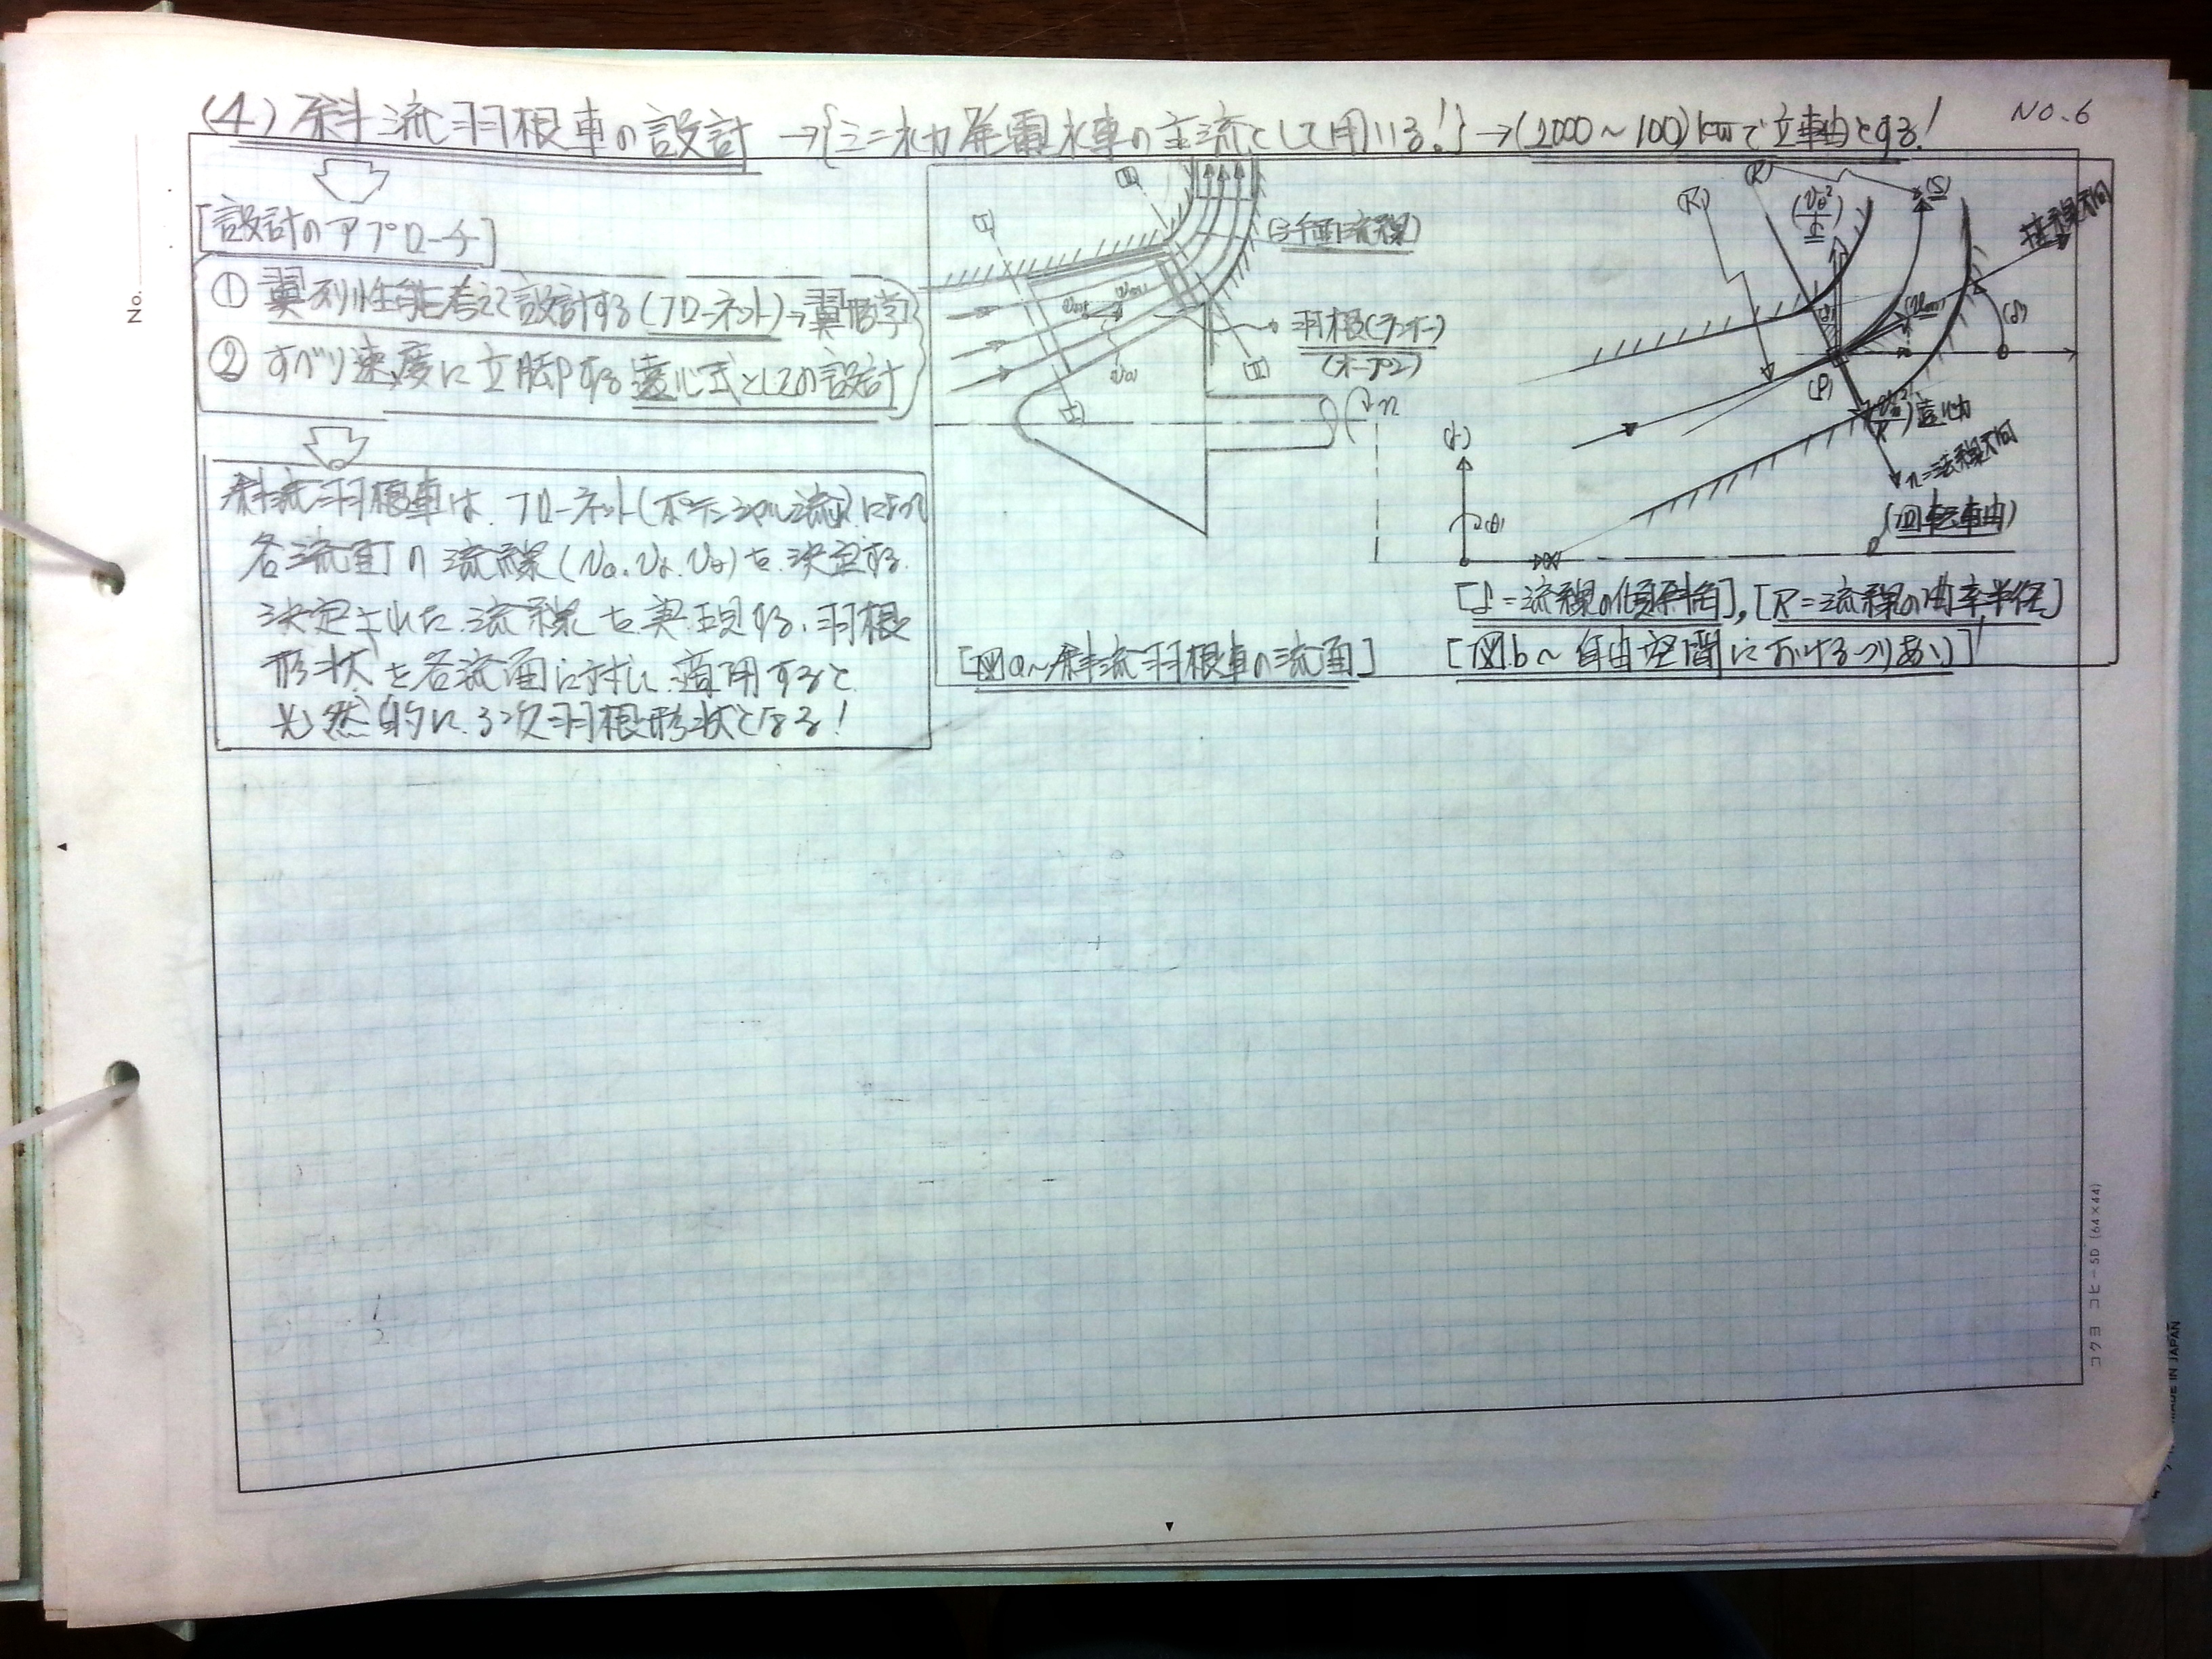 No.6
(4) 斜流羽根車の設計 →{ミニ水力発電水車の主流として用いる!}→(2000~100)kwで立軸とする!
[設計のアプローチ]
① 翼列性能に考えて設計する(フローネット)→翼形学
② すべり速度に立脚する遠心式としての設計
斜流羽根車は、フローネット(ポテンシャル流れ)によって
各流面の流線(Va.Vr.Vθ)を決定する.
決定された流線を実現する、羽根
形状を各流面に対し適用すると
必然的に3次羽根形状となる!
(子午面流線)
羽根(ランナー)
(オープン)
n
[図a~斜流羽根車の流面]
(R)
(S)
接線方向
(P)
遠心力
n=法線方向
(r)
(θ)
(回転軸)
[δ=流線の傾斜角], [R=流線の曲率半径]
[図b~自由空間におけるつりあい]
No.
コクヨ コヒ-5D (64×44)
MADE IN JAPAN